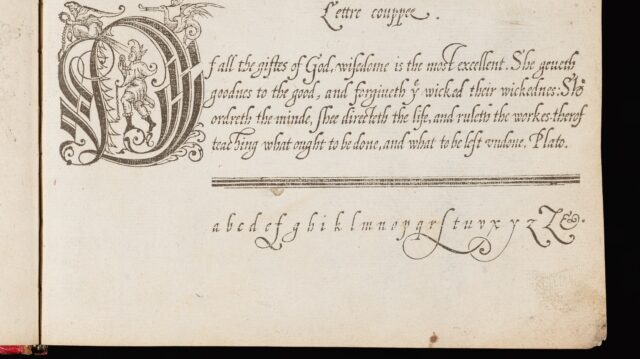 Lettre couppee.
Of all the giftes of God, wisedome is the most excellent. She geveth
goodnes to the good, and forgiveth yͤ wicked their wickednes: She
ordreth the minde, Shee directeth the life, and ruleth the workes therof
teaching what ought to be done, and what to be left vndone. Plato.
a b c d e f g h i k l m n o p q r ſ t u v x y z Z &.